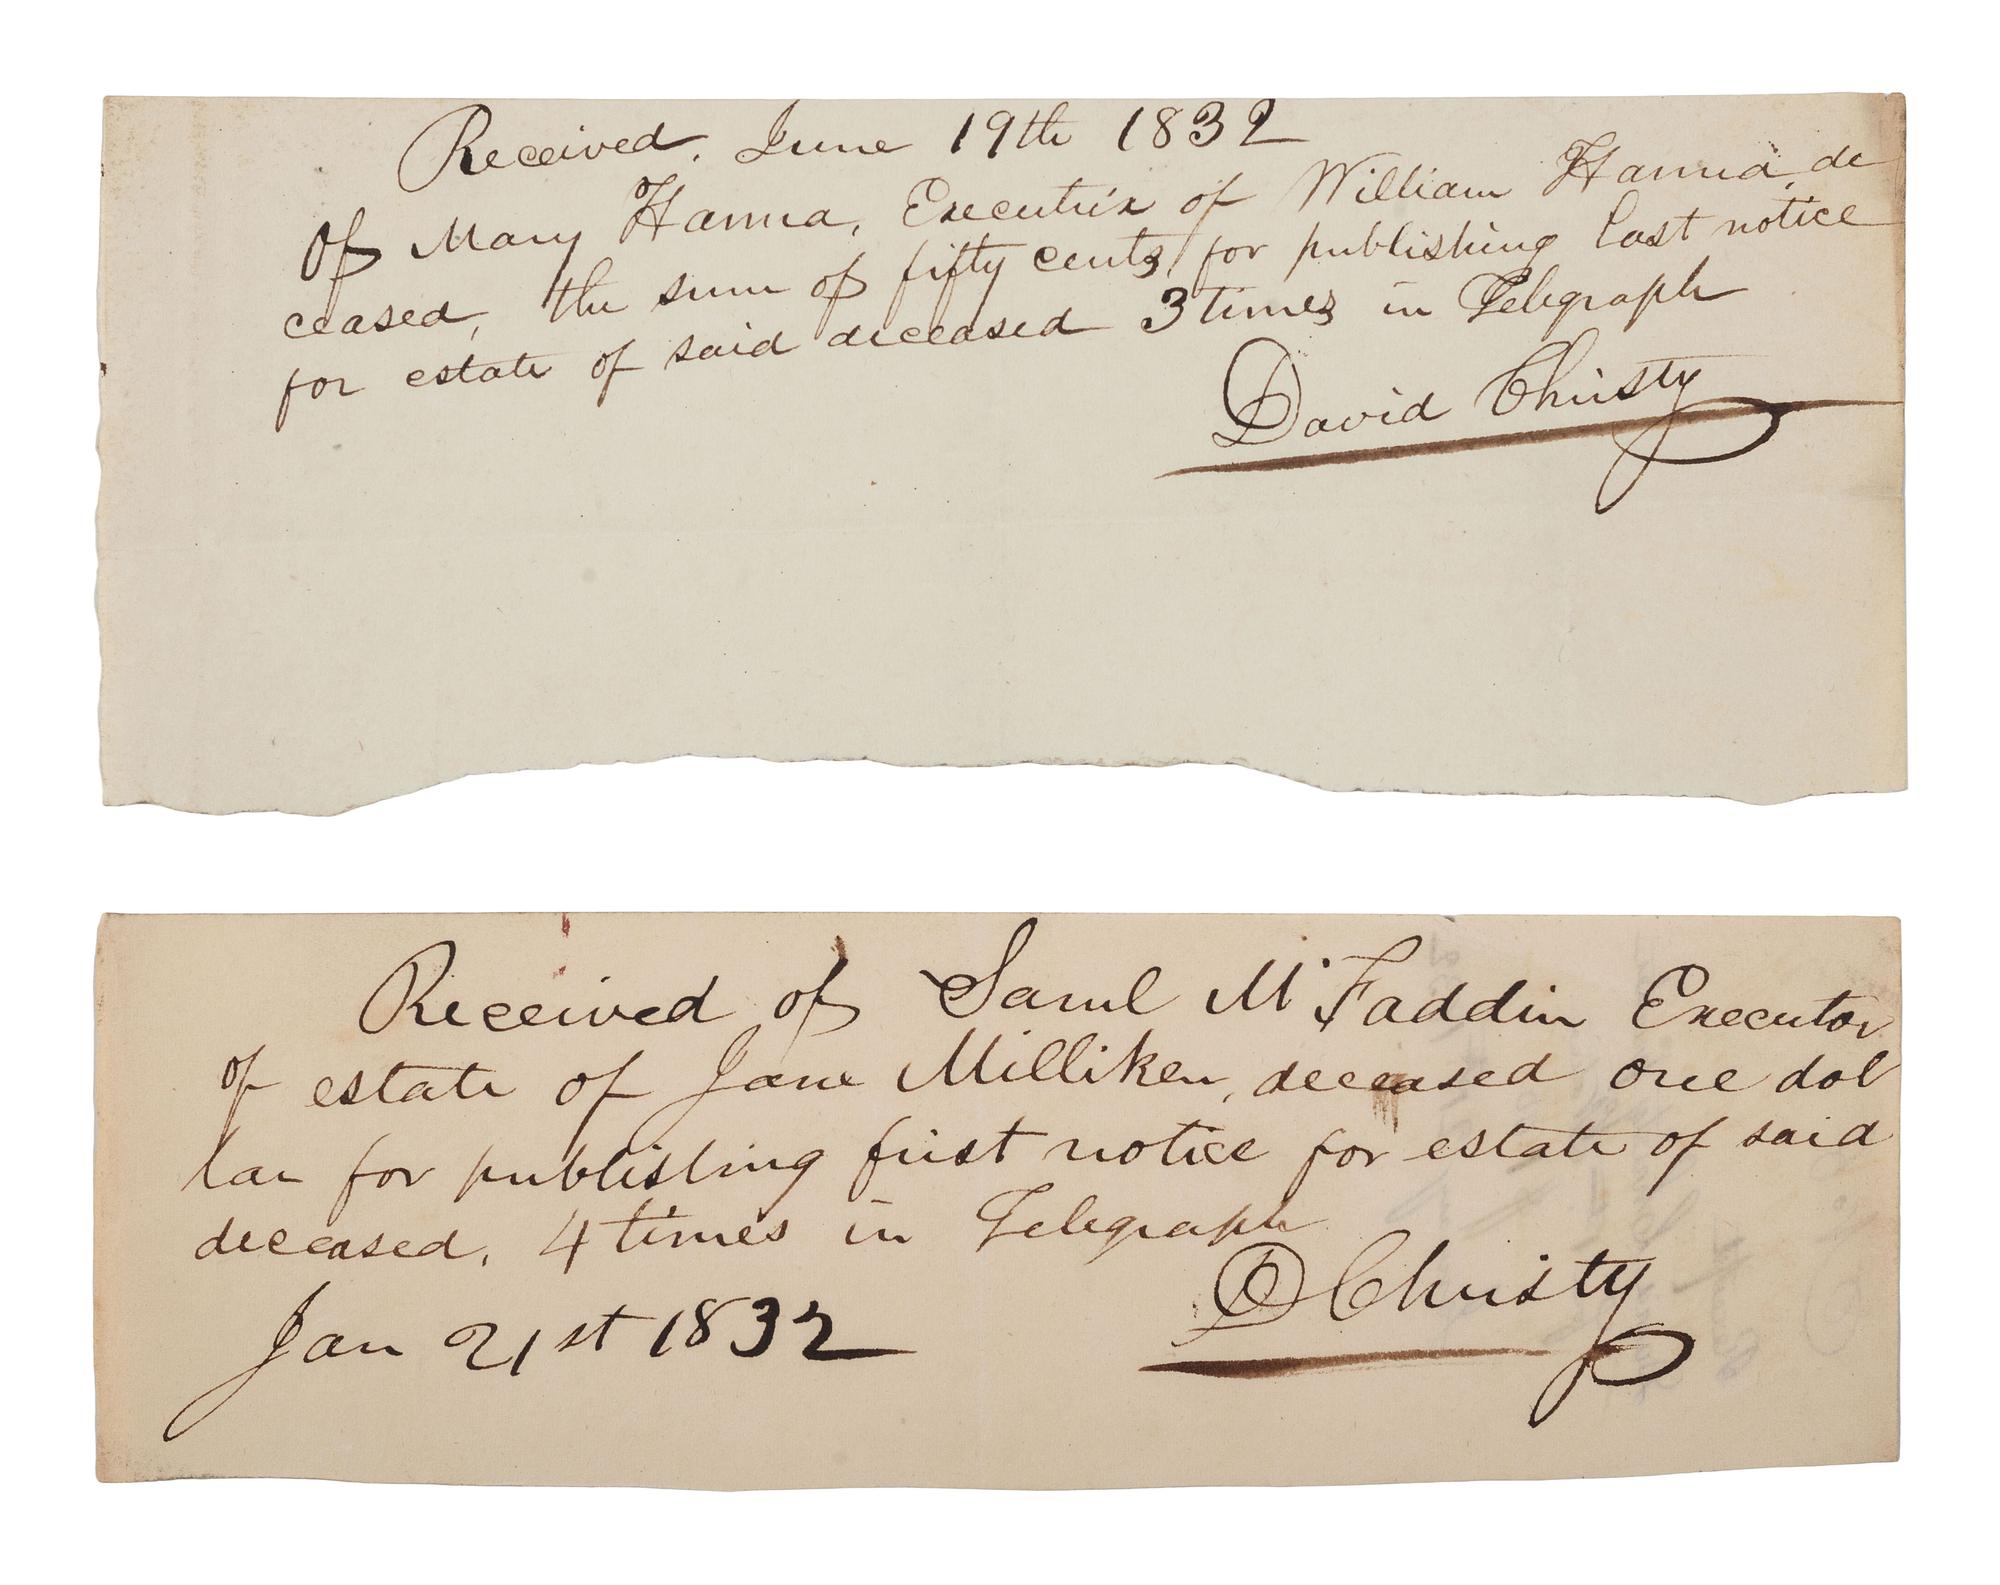 Received. June 19th 1832
Of Mary Hanna, Executrix of William Hanna, de
ceased, the sum of fifty cents, for publishing last notice
for estate of said deceased 3 times in Telegraph
David Christy
Received of Saml McFaddin Executor
of estate of Jane Milliken, deceased one dol
lar for publishing first notice for estate of said
deceased, 4 times in Telegraph
D Christy
Jan 21st 1832